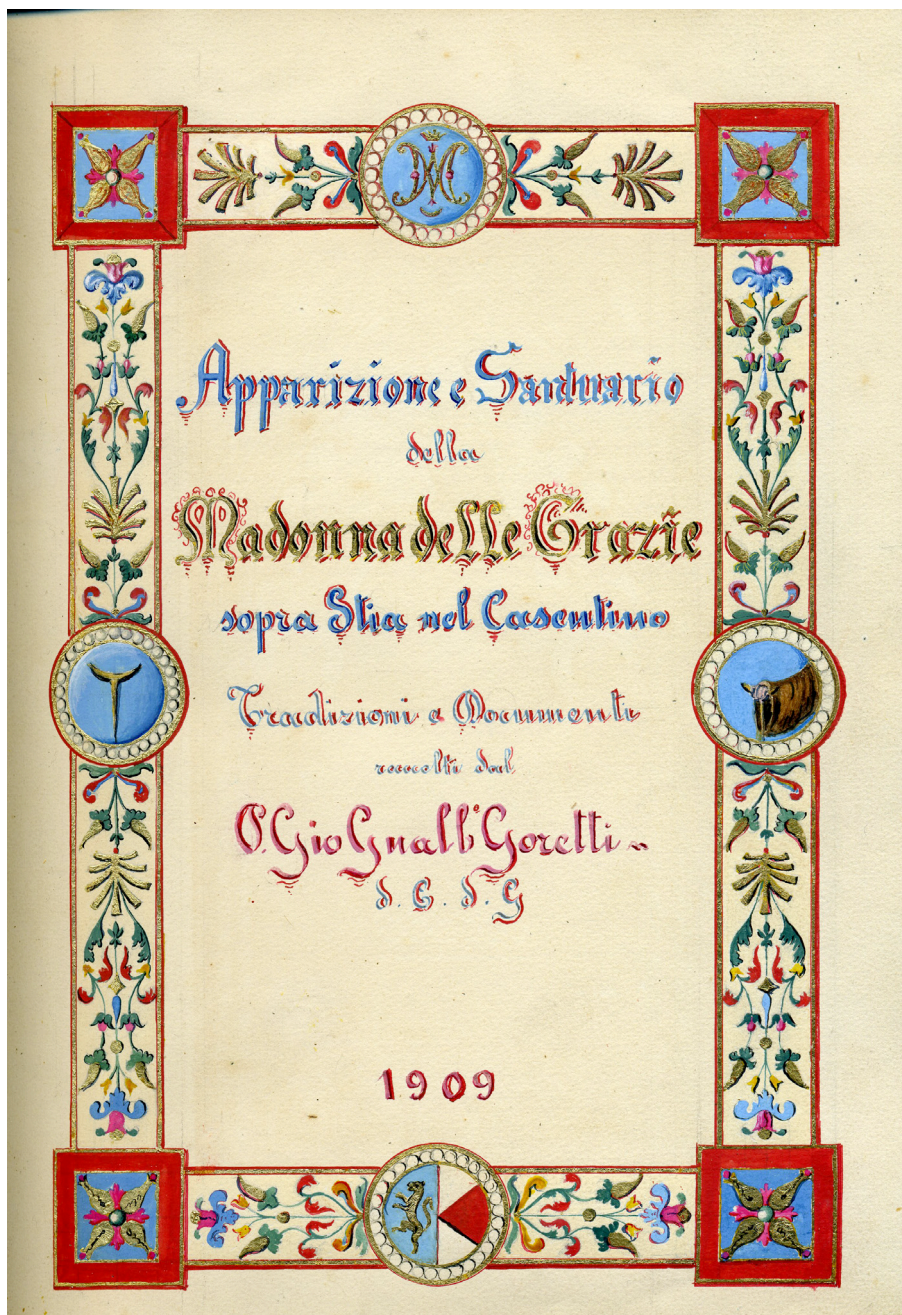 Apparizione e Santuario
della
Madonna delle Grazie
sopra Stia nel Casentino
Tradizioni e Documenti
raccolti dal
P. Gio Gualb° Goretti
d. C. d. G
1909